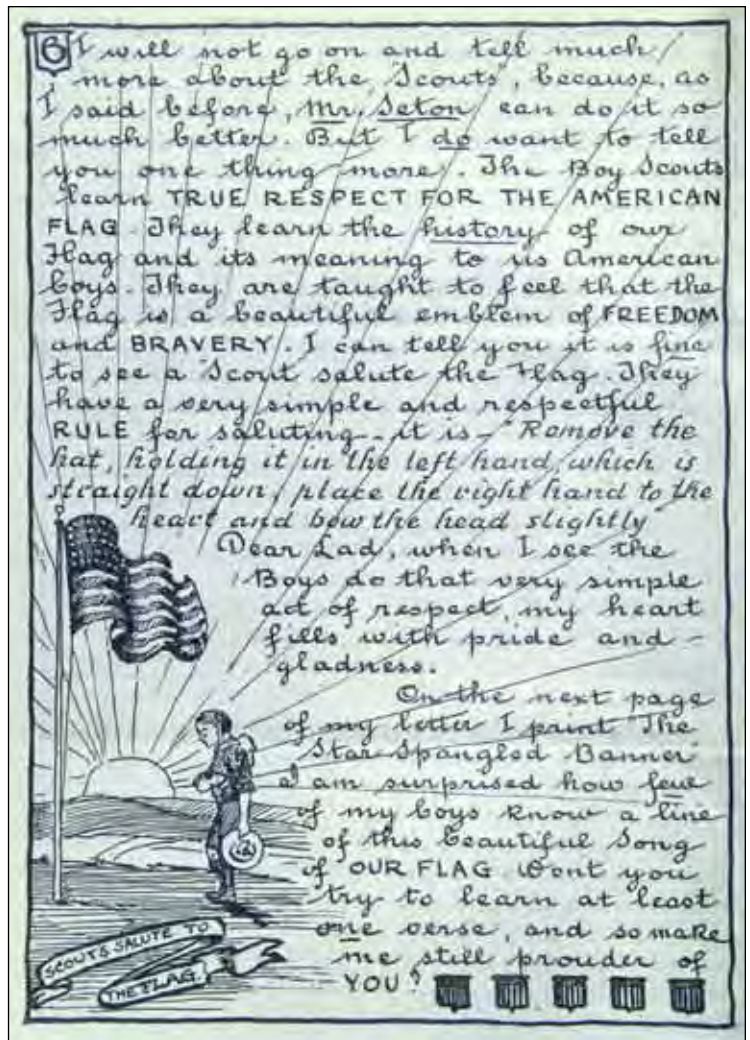 6 I will not go on and tell much
more about the "Scouts", because, as
I said before, Mr. Seton can do it so
much better. But I do want to tell
you one thing more. The Boy Scouts
learn TRUE RESPECT FOR THE AMERICAN
FLAG. They learn the history of our
Flag and its meaning to us American
boys. They are taught to feel that the
Flag is a beautiful emblem of FREEDOM
and BRAVERY. I can tell you it is fine
to see a Scout salute the Flag. They
have a very simple and respectful
RULE for saluting - it is - "Remove the
hat, holding it in the left hand, which is
straight down, place the right hand to the
heart and bow the head slightly"
Dear Lad, when I see the
Boys do that very simple
act of respect, my heart
fills with pride and -
gladness.
On the next page
of my letter I print "The
Star Spangled Banner"
I am surprised how few
of my boys know a line
of this beautiful Song
of OUR FLAG. Wont you
try to learn at least
one verse, and so make
me still prouder of
YOU?
SCOUTS SALUTE TO
THE FLAG.